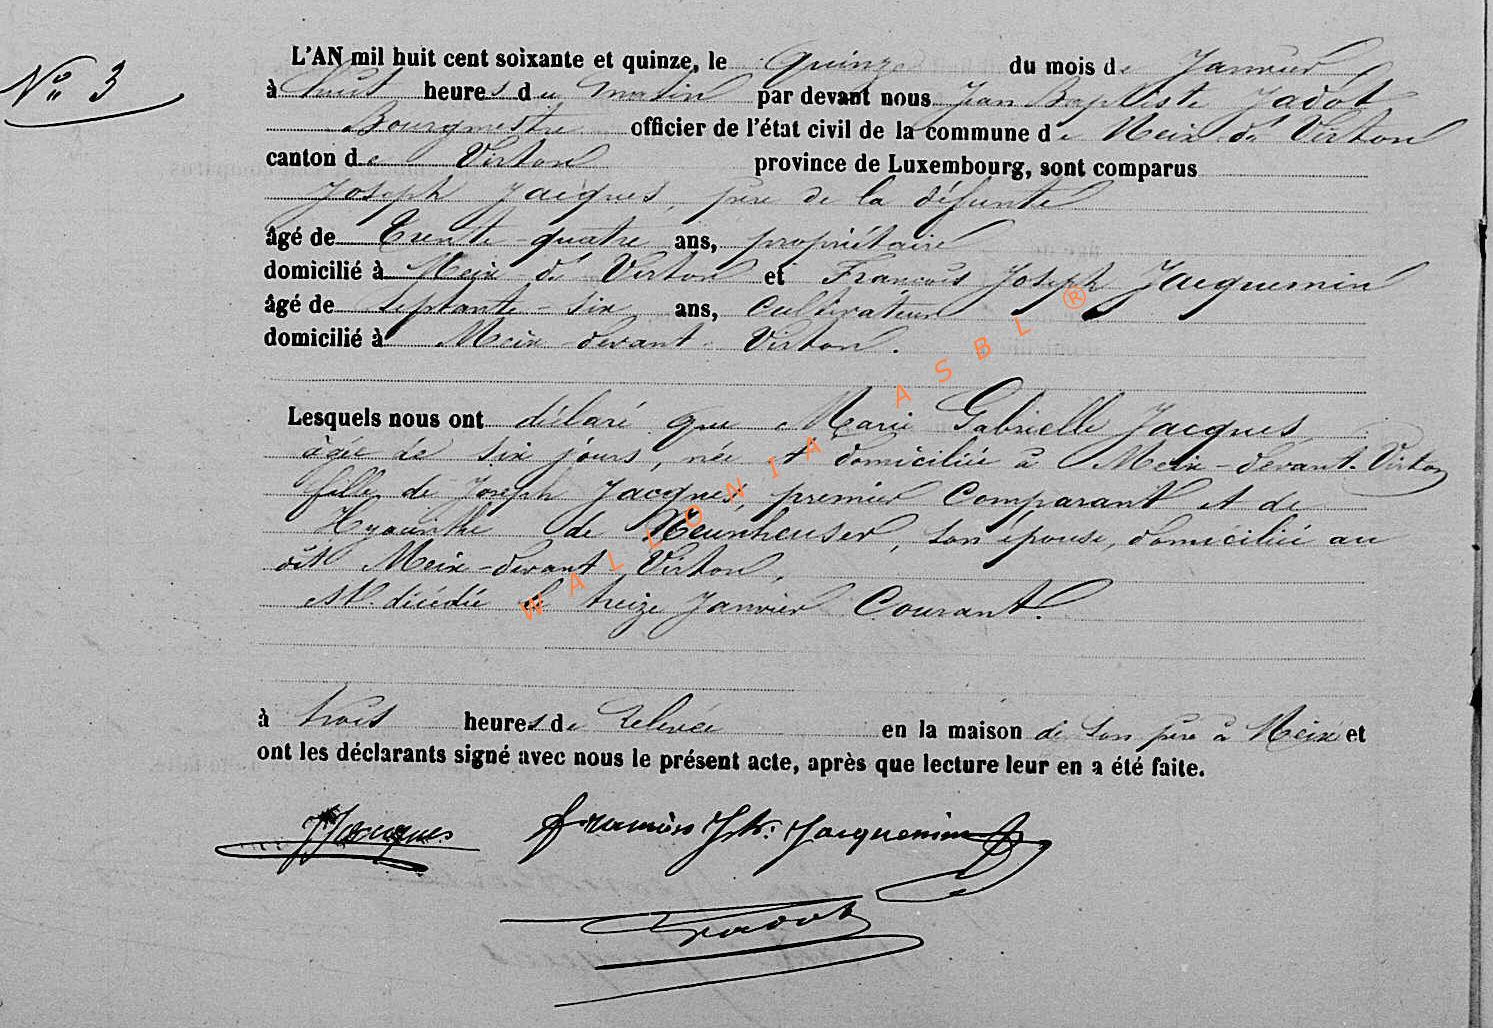 N° 3
L'AN mil huit cent soixante et quinze, le quinze du mois de Janvier
à huit heures du matin par devant nous Jean Baptiste Jadot
Bourgmestre officier de l'état civil de la commune de Meix dt Virton
canton de Virton province de Luxembourg, sont comparus
Joseph Jacques, père de la défunte
âgé de trente quatre ans, propriétaire
domicilié à Meix dt Virton et François Joseph Jacquemin
âgé de septante-six ans, cultivateur
domicilié à Meix-devant-Virton.
Lesquels nous ont déclaré que Marie Gabrielle Jacques
âgée de six jours, née et domiciliée à Meix-devant-Virton
fille de Joseph Jacques, premier comparant et de
Hyacinthe de Neunheuser, son épouse, domiciliée au
dit Meix-devant Virton,
est décédée le treize Janvier courant.
à trois heures de relevée en la maison de son père à Meix et
ont les déclarants signé avec nous le présent acte, après que lecture leur en a été faite.
J Jacques
François Jh. Jacquemin
Jadot
WALLONIA ASBL ®